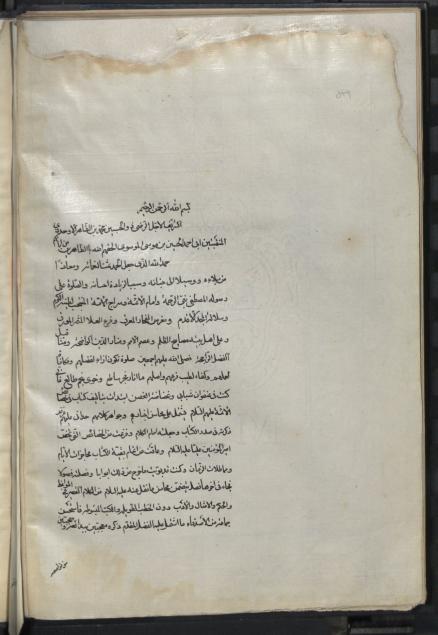 بسم الله الرحمن الرحيم
الرضي ذو الحسبين محمد بن الطاهر الاوحد ذي
النقيبين ابي احمد الحسين بن موسى الموسوي الحقهم الله
حمد الله الذي جعل الحمد ثمنا لنعمائه ومعاذا
من بلاءه ووسيلا الى جنانه وسببا لزيادة احسانه والصلوة على
رسوله المصطفى نبي الرحمة وامام الائمة وسراج الامة المنتخب من طينة الكرم
وسلالة المجد الاقدم ومغرس الفخار المعرق وفرع العلاء المثمر المورق
وعلى اهل بيته مصابيح الظلم وعصم الامم ومنار الدين الواضحة ومثاقيل
الفضل الراجحة فصلى الله عليهم اجمعين صلوة تكون ازاء لفضلهم ومكافاة
لعملهم وكفاء لطيب فرعهم واصلهم ما انار فجر ساطع وخوى نجم طالع فاني
كنت في عنفوان شبابي وغضاضة الغصن ابتدات بتاليف كتاب في خصائص
الائمة عليهم السلام يشتمل على محاسن اخبارهم وجواهر كلامهم حداني عليه غرض
ذكرته في صدر الكتاب وجعلته امام الكلام وفرغت من الخصائص التي تخص
امير المؤمنين عليا عليه السلام وعاقت عن اتمام بقية الكتاب محاجزات الايام
ومماطلات الزمان وكنت قد بوبت ما خرج من ذلك ابوابا وفصلته فصولا
فجاء في اخرها فصل يتضمن محاسن ما نقل عنه عليه السلام من الكلام القصير في المواعظ
والحكم والامثال والاداب دون الخطب الطويلة والكتب المبسوطة فاستحسن
جماعة من الاصدقاء ما اشتمل عليه الفصل المقدم ذكره معجبين ببدائعه ومتعجبين